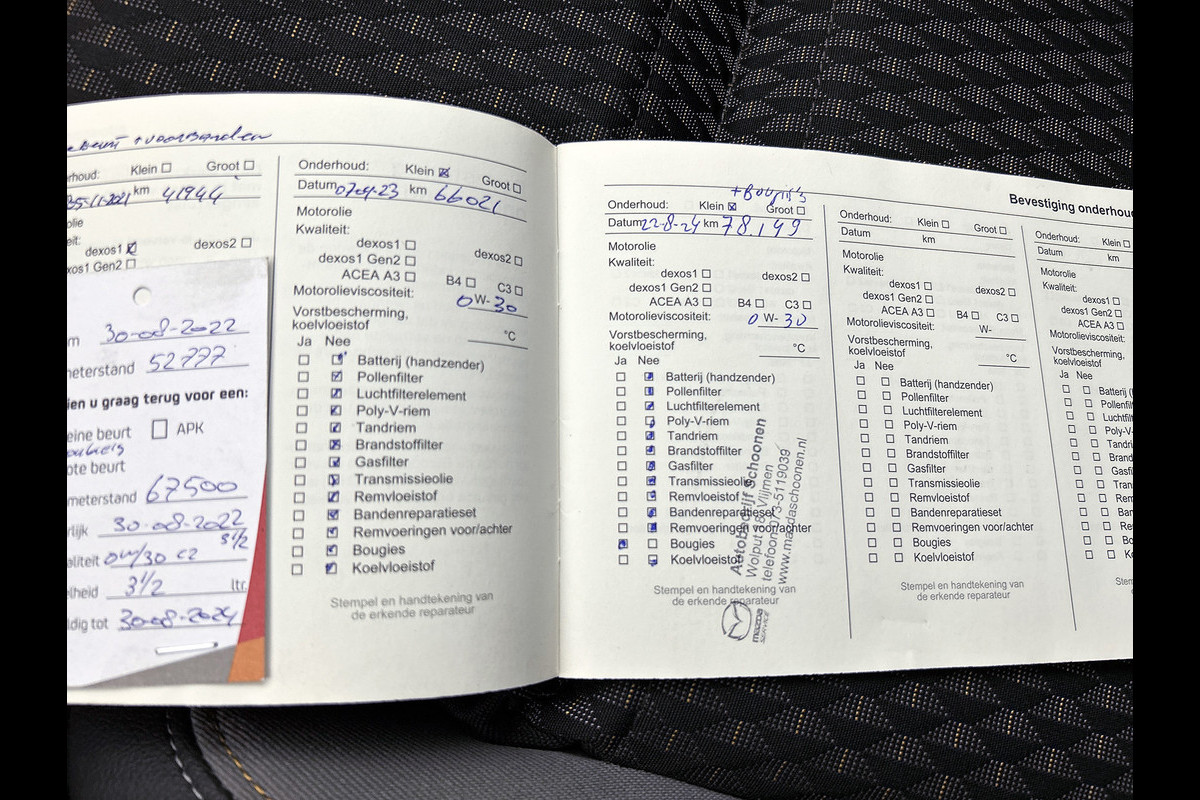 +voorbanden
rhoud: Klein Groot
25-11-2021 km 41944
olie
eit:
dexos1 dexos2
xos1 Gen2
m 30-08-2022
neterstand 52777
ien u graag terug voor een:
eine beurt APK
ote beurt
meterstand 67500
rlijk 30-08-2022
3 1/2
aliteit 0W/30 C2
lheid 3 1/2 ltr.
ldig tot 30-08-2024
Onderhoud: Klein Groot
Datum 07-04-23 km 66021
Motorolie
Kwaliteit:
dexos1 dexos2
dexos1 Gen2
ACEA A3 B4 C3
Motorolieviscositeit: 0 W- 30
Vorstbescherming,
koelvloeistof °C
Ja Nee
Batterij (handzender)
Pollenfilter
Luchtfilterelement
Poly-V-riem
Tandriem
Brandstoffilter
Gasfilter
Transmissieolie
Remvloeistof
Bandenreparatieset
Remvoeringen voor/achter
Bougies
Koelvloeistof
Stempel en handtekening van
de erkende reparateur
+Bougie's
Onderhoud: Klein Groot
Datum 22-8-24 km 78.149
Motorolie
Kwaliteit:
dexos1 dexos2
dexos1 Gen2
ACEA A3 B4 C3
Motorolieviscositeit: 0 W- 30
Vorstbescherming,
koelvloeistof °C
Ja Nee
Batterij (handzender)
Pollenfilter
Luchtfilterelement
Poly-V-riem
Tandriem
Brandstoffilter
Gasfilter
Transmissieolie
Remvloeistof
Bandenreparatieset
Remvoeringen voor/achter
Bougies
Koelvloeistof
Stempel en handtekening van
de erkende reparateur
Autobedrijf Schoonen
Wolput 58, Vlijmen
telefoon 073-5119039
www.mazdaschoonen.nl
mazda
SERVICE
Bevestiging onderhoud
Onderhoud: Klein Groot
Datum km
Motorolie
Kwaliteit:
dexos1 dexos2
dexos1 Gen2
ACEA A3 B4 C3
Motorolieviscositeit: W-
Vorstbescherming,
koelvloeistof °C
Ja Nee
Batterij (handzender)
Pollenfilter
Luchtfilterelement
Poly-V-riem
Tandriem
Brandstoffilter
Gasfilter
Transmissieolie
Remvloeistof
Bandenreparatieset
Remvoeringen voor/achter
Bougies
Koelvloeistof
Stempel en handtekening van
de erkende reparateur
Onderhoud: Klein
Datum km
Motorolie
Kwaliteit:
dexos1
dexos1 Gen2
ACEA A3
Motorolieviscositeit:
Vorstbescherming,
koelvloeistof
Ja Nee
Batterij (h
Pollenfil
Luchtfil
Poly-V-
Tandri
Brand
Gasfi
Tran
Rem
Ban
Re
Bo
Ko
Stem
d